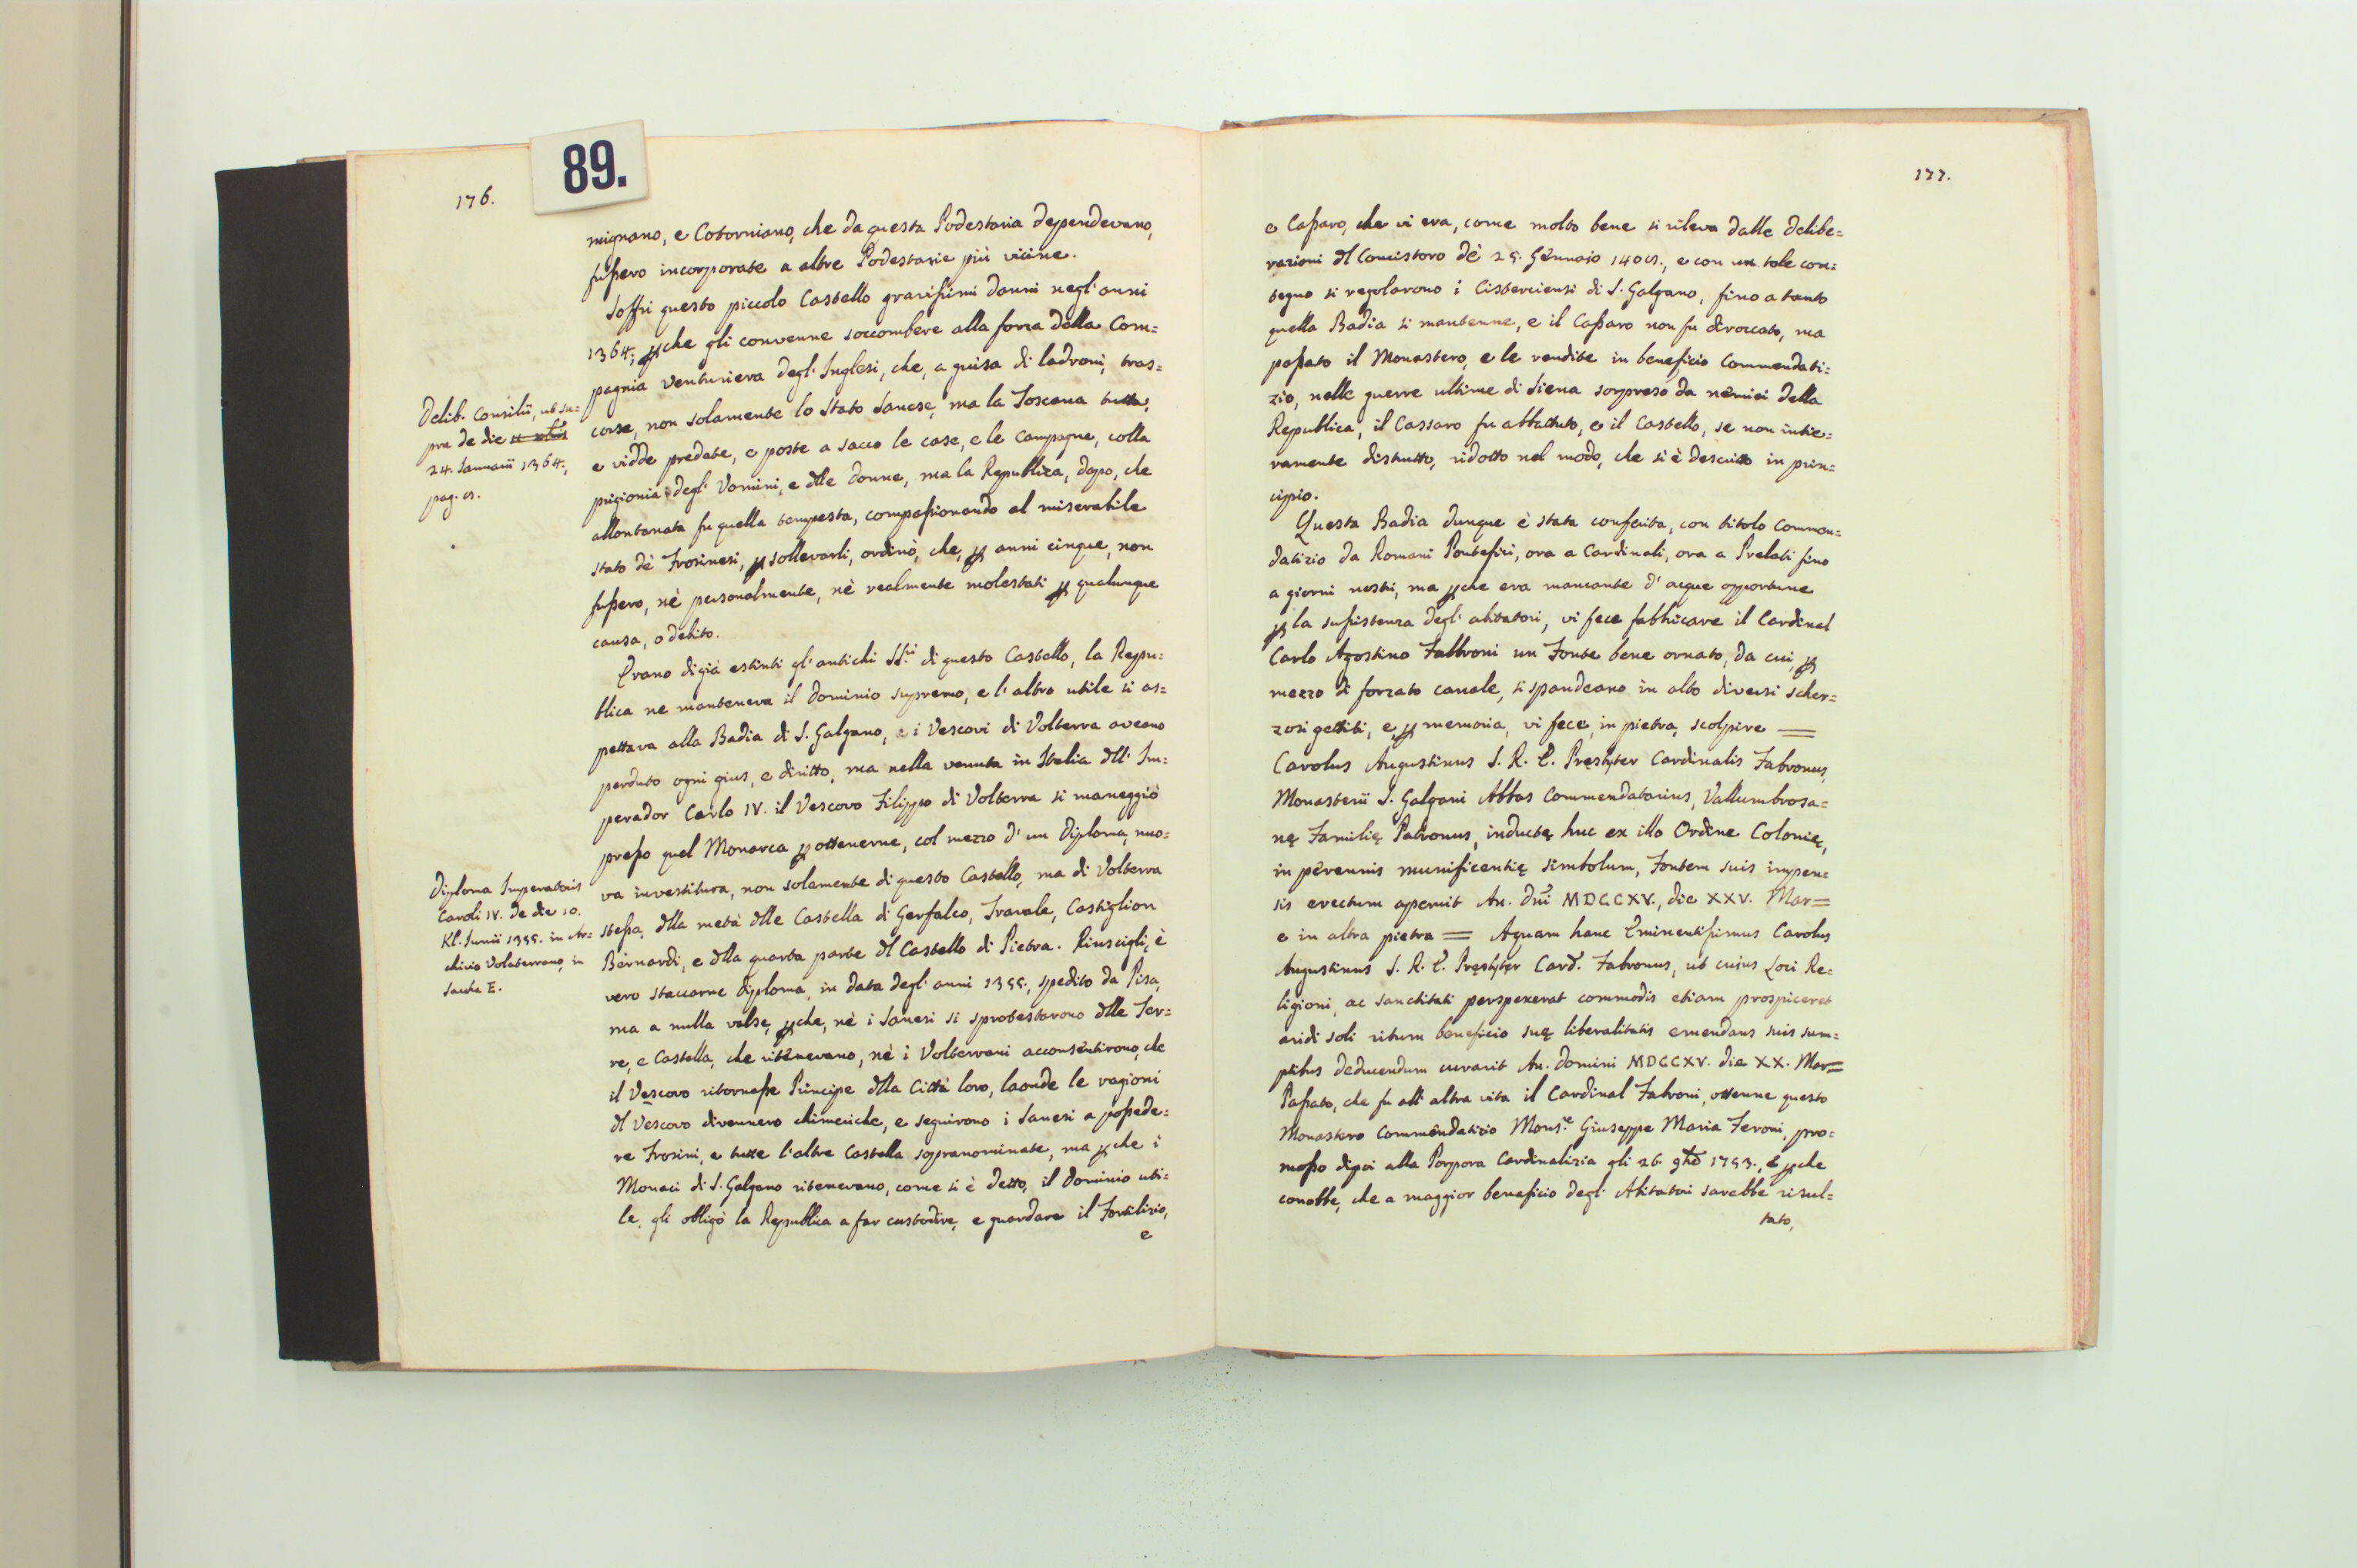 176.
89.
mignano, e Cotorniano, che da questa Podestaria dependevano,
fussero incorporate a altre Podestarie più vicine.
Soffri questo piccolo Castello gravissimi danni negl'anni
1364., pche gli convenne soccombere alla forza della Com=
pagnia venturiera degl'Inglesi, che, a guisa di ladroni, tras=
corse, non solamente lo stato Sanese, ma la Toscana tutta,
e vidde predate, e poste a sacco le case, e le campagne, colla
prigionia degl'Uomini, e dlle donne, ma la Republica, dopo, che
allontanata fu quella tempesta, compassionando al miserabile
stato dè Frosinesi, p sollevarli, ordinò, che, p anni cinque, non
fussero, nè personalmente, nè realmente molestati p qualunque
causa, o debito.
Erano digià estinti gl'antichi SS.ri di questo Castello, la Repu=
blica ne manteneva il dominio supremo, e l'altro utile si as=
pettava alla Badia di S. Galgano, e i Vescovi di Volterra aveano
perduto ogni gius, e diritto, ma nella venuta in Italia dll' Im=
perador Carlo IV. il Vescovo Filippo di Volterra si maneggiò
presso quel Monarca p ottenerne, col mezzo d'un Diploma, nuo=
va investitura, non solamente di questo Castello, ma di Volterra
stessa, dlla metà dlle Castella di Gerfalco, Travale, Castiglion
Bernardi, e dlla quarta parte dl Castello di Pietra. Riuscigli, è
vero staccarne Diploma, in data degl'anni 1355., spedito da Pisa,
ma a nulla valse, pche, nè i Sanesi si sprotestarono dlle Ter=
re, e Castella, che ritenevano, nè i Volterrani acconsentirono, che
il Vescovo ritornasse Principe dlla Città loro, laonde le ragioni
dl Vescovo divennero chimeriche, e seguirono i Sanesi a possede=
re Frosini, e tutte l'altre Castella sopranominate, ma pche i
Monaci di S. Galgano ritenevano, come si è detto, il dominio uti=
le, gli obligò la Republica a far custodire, e guardare il Fortilizio,
e
Delib. Consilii, ut su=
pra de die
24. Januarii 1364.,
pag. 15.
Diploma Imperatoris
Caroli IV. de die 10.
Kl. Junii 1355. in Ar=
chivio Volaterrano, in
Saccha E.
177.
e Cassaro, che vi era, come molto bene si rileva dalle delibe=
razioni dl Concistoro dè 25. Gennaio 1405., e con un tale con=
tegno si regolarono i Cisterciensi di S. Galgano, fino a tanto
quella Badia si mantenne, e il Cassaro non fu diroccato, ma
passato il Monastero, e le rendite in beneficio Commendati=
zio, nelle guerre ultime di Siena sorpreso da nemici della
Republica, il Cassaro fu abbattuto, e il Castello, se non intie=
ramente distrutto, ridotto nel modo, che si è descritto in prin=
cipio.
Questa Badia dunque è stata conferita, con titolo Commen=
datizio da Romani Pontefici, ora a Cardinali, ora a Prelati fino
a giorni nostri, ma pche era mancante d'acque opportune
p la sussistenza degl'abitatori, vi fece fabbricare il Cardinal
Carlo Agostino Fabbroni un Fonte bene ornato, da cui, p
mezzo di forzato canale, si spandeano in alto diversi scher=
zosi gettiti, e, p memoria, vi fece, in pietra, scolpire =
Carolus Augustinus S. R. E. Pręsbyter Cardinalis Fabronus,
Monasterii S. Galgani Abbas Commendatarius, Vallumbrosa=
nę Familię Patronus, inductę huc ex illo Ordine Colonię,
in perennis munificentię simbolum, Fontem suis impen=
sis erectum aperuit An. Dni MDCCXV., die XXV. Mar=
e in altra pietra = Aquam hanc Eminentissimus Carolus
Augustinus S. R. E. Pręsbyter Card. Fabronus, ut cuius Loci Re=
ligioni, ac sanctitati perspexerat commodis etiam prospiceret
aridi soli situm beneficio suę liberalitatis emendans suis sum=
ptibus deducendum curavit An. Domini MDCCXV. die XX. Mar=
Passato, che fu all'altra vita il Cardinal Fabroni, ottenne questo
Monastero Commendatizio Mons.re Giuseppe Maria Feroni, pro=
mosso dipoi alla Porpora Cardinalizia gli 26. 9bre 1753., e pche
conobbe, che a maggior beneficio degl'Abitatori sarebbe risul=
tato,